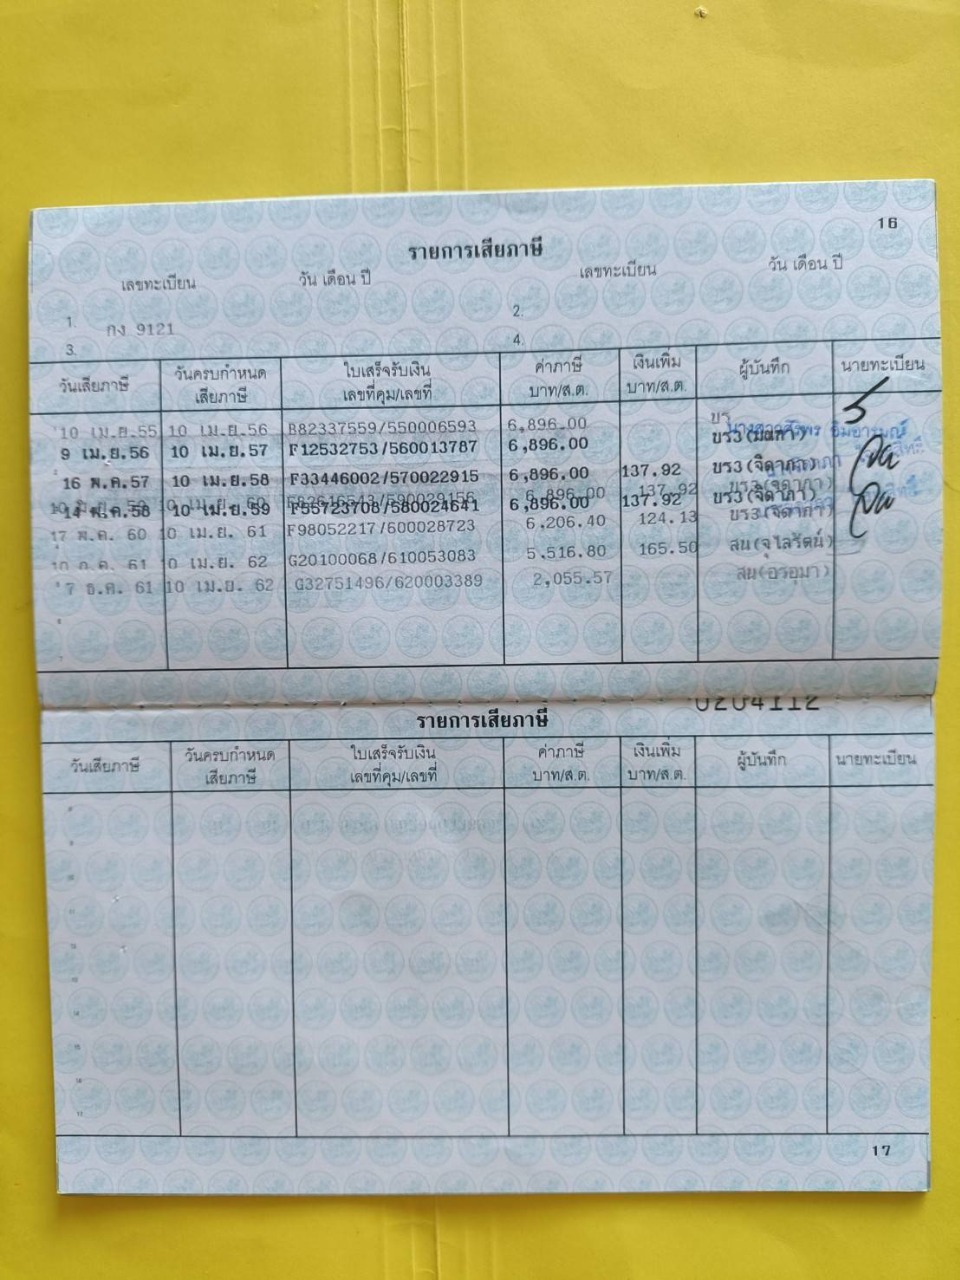 16
รายการเสียภาษี
เลขทะเบียน วัน เดือน ปี เลขทะเบียน วัน เดือน ปี
1. กง 9121 2.
3. 4.
วันเสียภาษี วันครบกำหนดเสียภาษี ใบเสร็จรับเงิน เลขที่คุม/เลขที่ ค่าภาษี บาท/ส.ต. เงินเพิ่ม บาท/ส.ต. ผู้บันทึก นายทะเบียน
10 เม.ย.55 10 เม.ย.56 B82337559/550006593 6,896.00 บร
9 เม.ย.56 10 เม.ย.57 F12532753/560013787 6,896.00
16 พ.ค.57 10 เม.ย.58 F33446002/570022915 6,896.00 137.92 บร3(จิดาภา)
6,896.00 137.92 บร3(จิดาภา)
14 พ.ค.58 10 เม.ย.59 F55723708/580024641 6,896.00 137.92 บร3(จิดาภา)
17 พ.ค. 60 10 เม.ย. 61 F98052217/600028723 6,206.40 124.13 บร3(จิดาภา)
10 ก.ค. 61 10 เม.ย. 62 G20100068/610053083 5,516.80 165.50 สน(จุไลรัตน์)
7 ธ.ค. 61 10 เม.ย. 62 G32751496/620003389 2,055.57 สน(อรอุมา)
รายการเสียภาษี
วันเสียภาษี วันครบกำหนดเสียภาษี ใบเสร็จรับเงิน เลขที่คุม/เลขที่ ค่าภาษี บาท/ส.ต. เงินเพิ่ม บาท/ส.ต. ผู้บันทึก นายทะเบียน
17